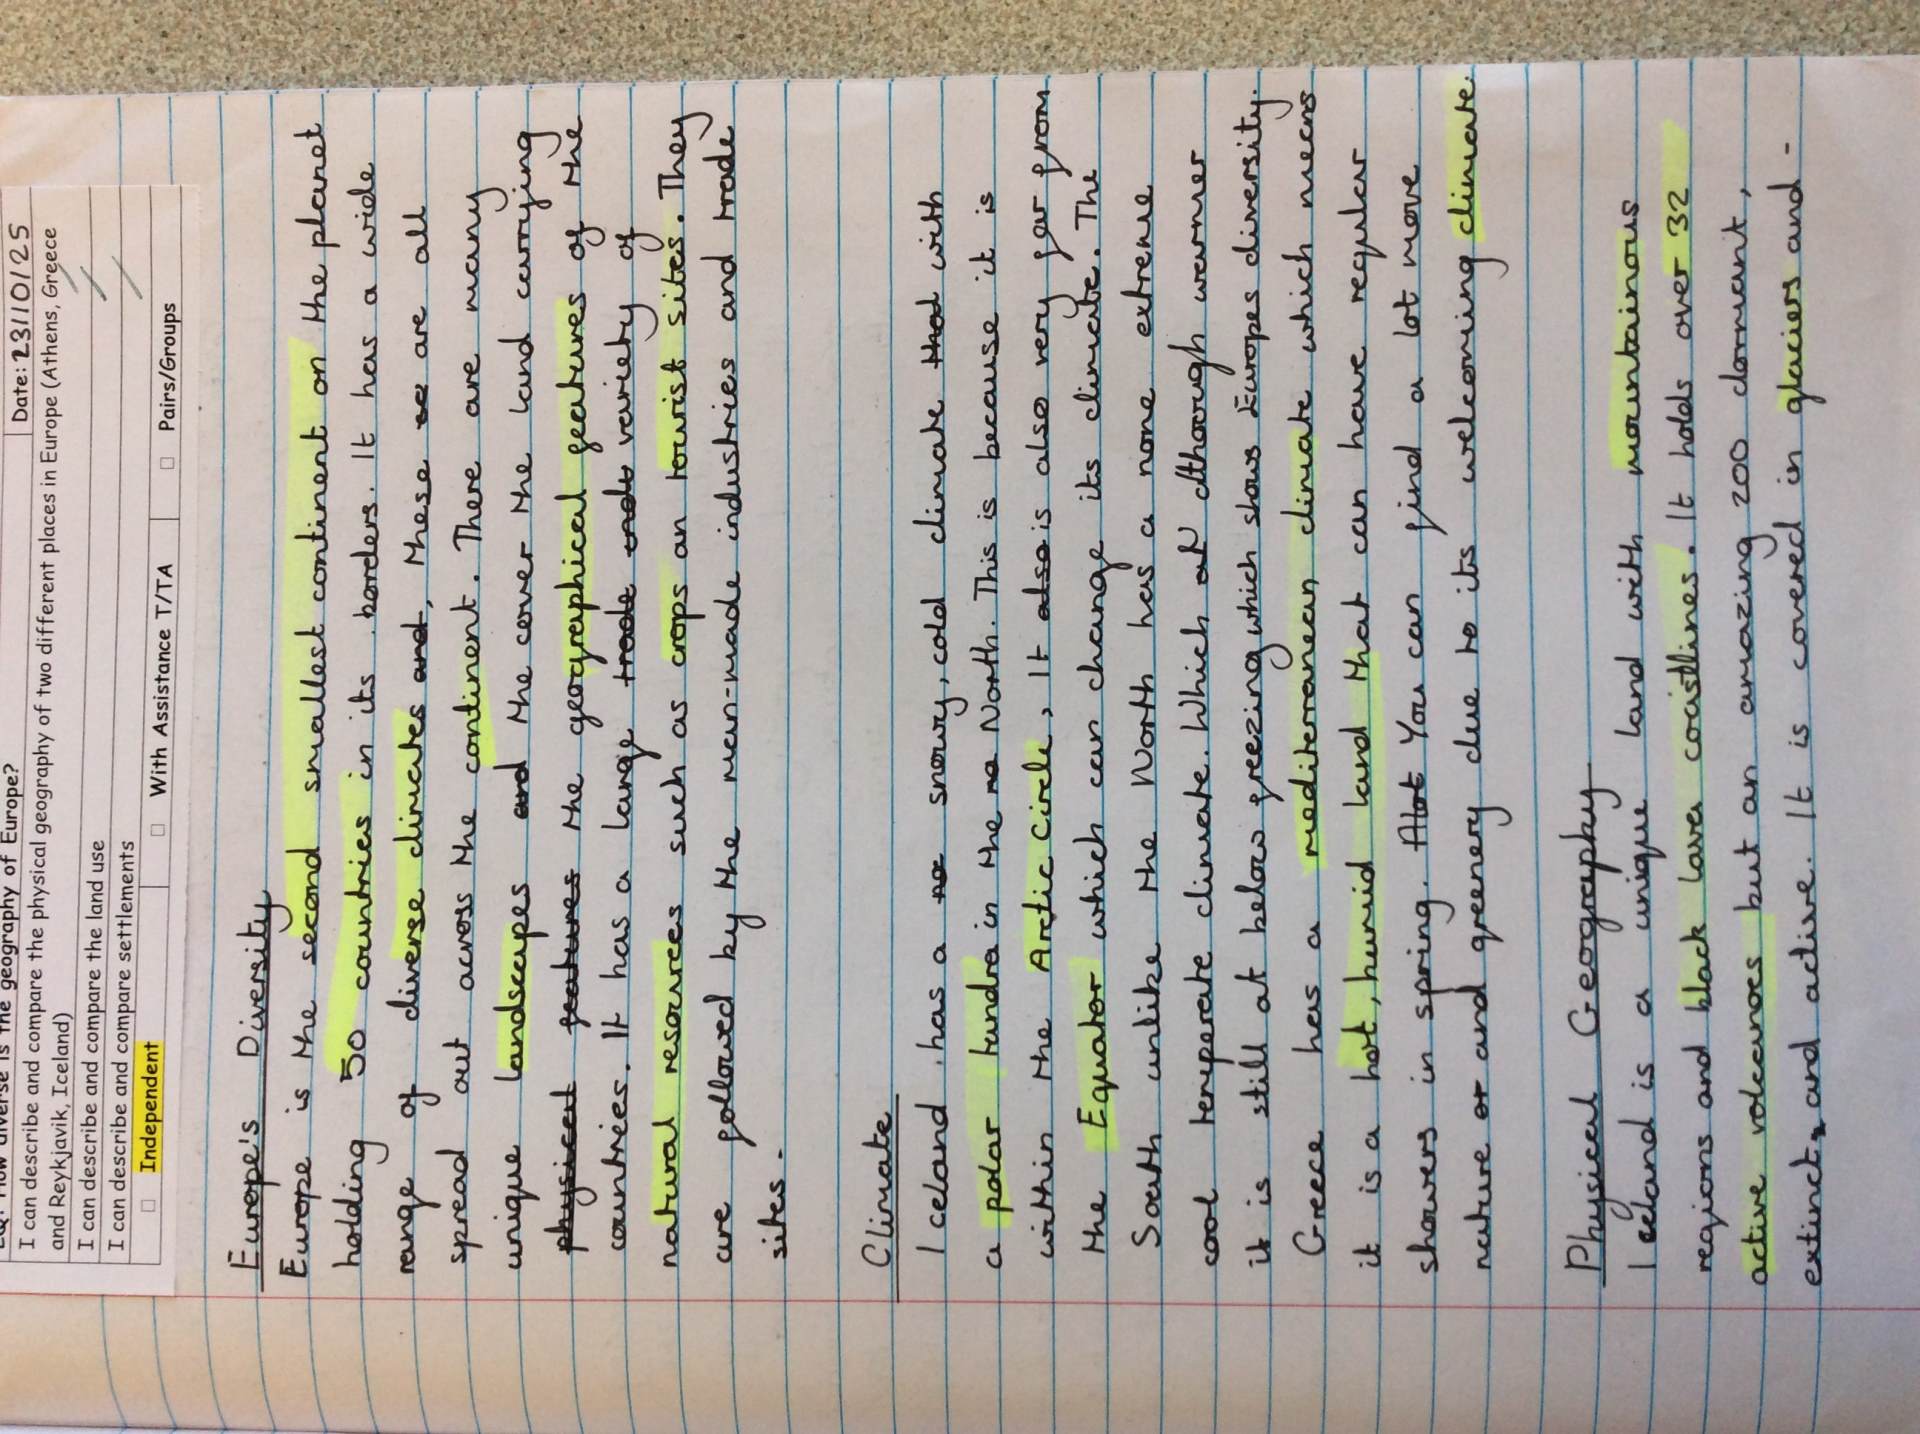 LQ: How diverse is the geography of Europe?
Date: 23/10/25
I can describe and compare the physical geography of two different places in Europe (Athens, Greece
and Reykjavik, Iceland)
I can describe and compare the land use
I can describe and compare settlements
□ Independent □ With Assistance T/TA □ Pairs/Groups
Europe's Diversity
Europe is the second smallest continent on the planet
holding 50 countries in its borders. It has a wide
range of diverse climates and, these are all
spread out across the continent. There are many
unique landscapes and the cover the land carrying
physical features the geographical features of the
countries. It has a large trade and variety of
natural resources such as crops an tourist sites. They
are followed by the man-made industries and trade
sites.
Climate
Iceland has a snowy, cold climate that with
a polar tundra in the North. This is because it is
within the Arctic Circle, It also is also very far from
the Equator which can change its climate. The
South unlike the North has a none extreme
cool temperate climate. Which althoough warmer
it is still at below freezing which shows Europes diversity.
Greece has a mediterranean climate which means
it is a hot, humid land that can have regular
showers in spring. Alot You can find a lot more
nature or and greenery due to its welcoming climate.
Physical Geography
Iceland is a unique land with mountainous
regions and black lava coastlines. It holds over 32
active volcanoes but an amazing 200 dormant,
extinct and active. It is covered in glaciers and -